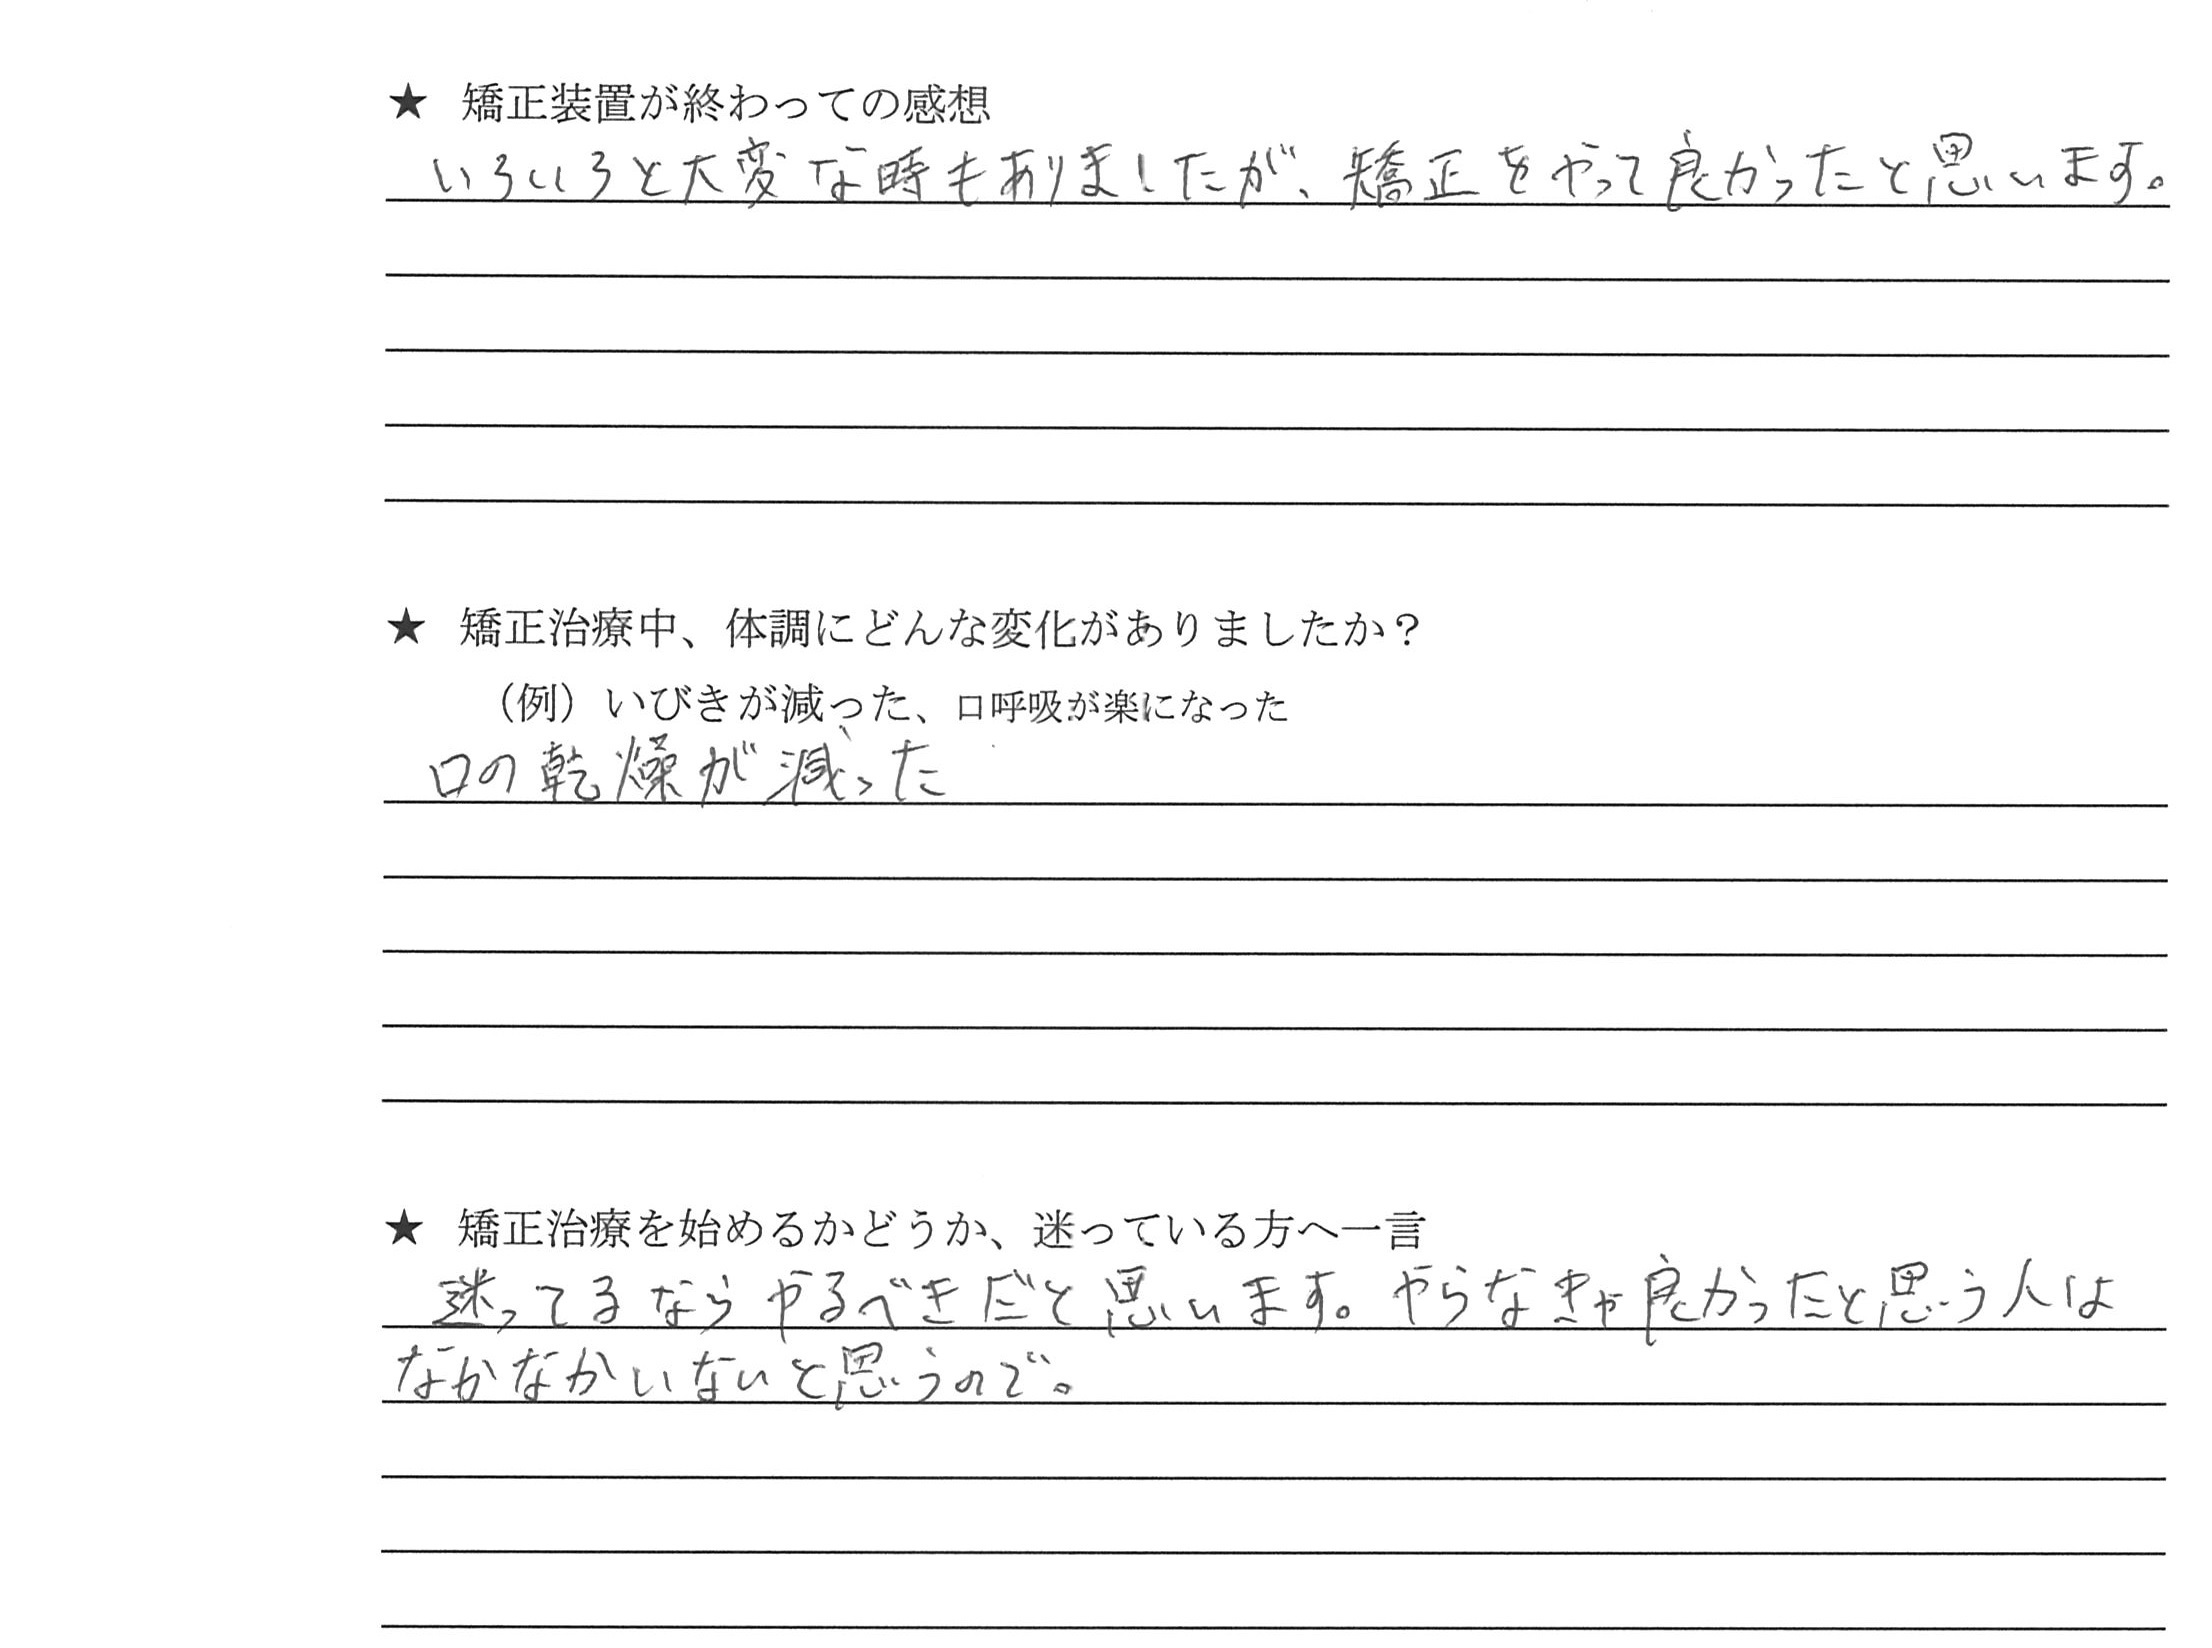 ★ 矯正装置が終わっての感想
いろいろと大変な時もありましたが、矯正をやって良かったと思います。
★ 矯正治療中、体調にどんな変化がありましたか？
（例）いびきが減った、口呼吸が楽になった
口の乾燥が減った
★ 矯正治療を始めるかどうか、迷っている方へ一言
迷ってるならやるべきだと思います。やらなきゃ良かったと思う人は
なかなかいないと思うので。